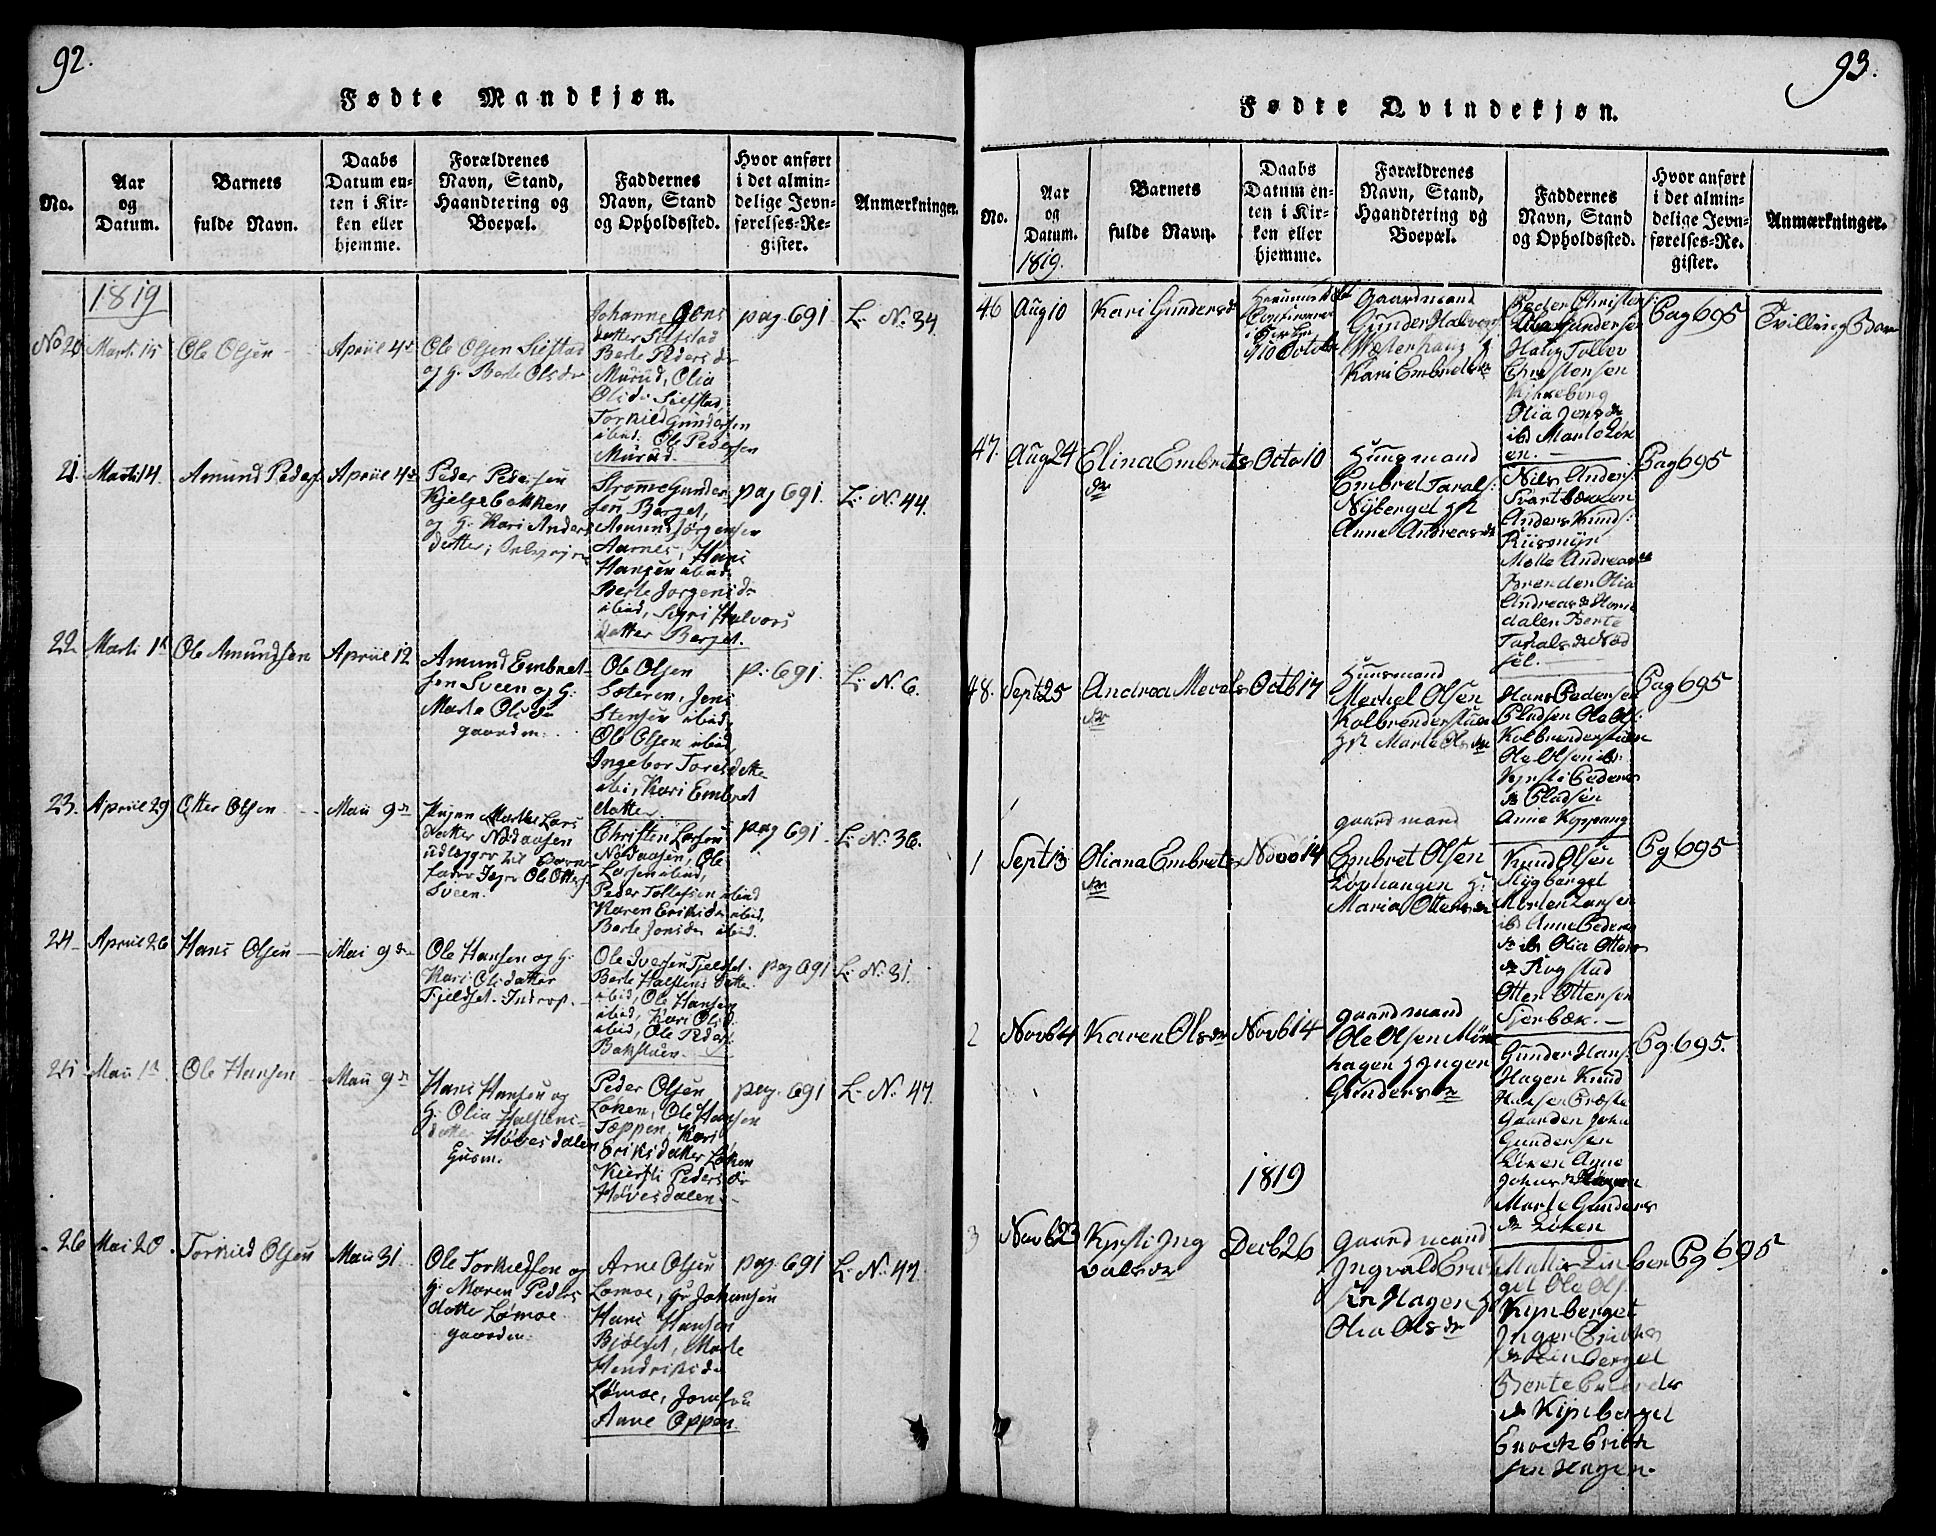 92.
Fødte Mandkjøn.
No.
Aar
og
Datum.
Barnets
fulde Navn.
Daabs
Datum en-
ten i Kir-
ken eller
hjemme.
Forældrenes
Navn, Stand,
Haandtering og
Boepæl.
Faddernes
Navn, Stand
og Opholdssted.
Hvor anført
i det almin-
delige Jevn-
førelses-Re-
gister.
Anmærkninger.
1819
No 20
Marti 15
Ole Olsen
Apriil 4de
Ole Olsen Siefstad
og H. Berte Olsdr
Johanne Jons
datter Siefstad
Berte Peders dr
Murud, Olia
Olsdr Siefstad,
Torkild Gundersen
ibid: Ole Pedersen
Murud.
pag 691
L: No: 34.
21.
Marti 14.
Amund Peders
Apriil 4de
Peder Pedersen
Kjelsebakken
og H: Kari Anders
datter;
Gunder-
sen Berget,
Amund Jørgensen
Aarnes, Hans
Hansen ibid,
Berte Jørgensdr
ibid, Sigri Halvors
datter Berget.
pag 691.
L: No: 44.
22
Marti
Ole Amundsen
Apriil 12
Amund Embret-
sen Sveen og H:
Marte Olsdr
gaardm:
Ole Olsen
Sæteren, Jens
Stensen ibid,
Ole Olsen ibid,
Ingebor Torsdatte
ibi, Kari Embret
datter.
p: 691.
L: No. 6.
23.
Apriil 29
Otter Olsen
Maii 9de
Pigen Marthe Lars
datter Nødaasen
udlægger til Barne
fader Ole Otters
Sveen.
Christen Larsen
Nødaasen, Ole
Larsen ibid,
Peder Tollefsen ibid
Karen Eriksdr ibid.
Berte Jonsdr ibid.
pag 691
L: No: 36.
24
Apriil 26
Hans Olsen
Mai 9de
Ole Hansen og H:
Kari Olsdatter
Fjeldset.
Ole Iversen Fjeldset.
Berte Halstens datte
ibid, Ole Hansen
ibid, Kari Olsd.
ibid, Ole Peders
Bakstuen.
pag 691
L: No: 31.
25
Maii
Ole Hansen
Maii 9de
Hans Hansen og
H: Olia Halstens-
datter Høvesdalen
Husm.
Peder Olsen
Løken, Ole Hansen
Tæppen, Kari
Eriksdatter Løken
Kiersti Pedersdr
Høvesdalen
pag. 691
L: No: 47.
26
Mai 20.
Torkild Olsen
Maii 31
Ole Torkildsen og
H: Maren Peders
datter Lømoe
gaardm:
Arne Olsen
Lømoe, Johansen
Hans Hansen
Bjølset, Marte
Hendriksdr
Lømoe, Jomfru
Anne Oppen.
pag: 691
L: No: 47.
93.
Fødte Qvindekjøn.
No.
Aar
og
Datum.
1819.
Barnets
fulde Navn.
Daabs
Datum en-
ten i Kir-
ken eller
hjemme.
Forældrenes
Navn, Stand,
Haandtering og
Boepæl.
Faddernes
Navn, Stand
og Opholdssted.
Hvor anført
i det almin-
delige Jevn-
førelses-Re-
gister.
Anmærkninger.
46
Aug 10
Kari Gundersdr
Hjemmedøbt
Confirmeret
i Kirken
10 October
Gaardmand
Gunder Halvors
Westerhaug H
Kari Embretsdr
Peder Christens:
Gundersen
Haug Tollev
Christensen
Kirkeberg
Olia Jensdr
ib Marte Løk
en.
Pag 695
Tvilling Barn
47.
Aug 24
Elina Embrets
dr
Octo 10
Huusmand
Embret Tarals:
Nÿberget H
Anne Andreasdr
Nils Anders:
Svartbækken
Anders Knuds:
Riisnyin
Mette Andreasdr
Brenden Olia
Andreasdr Horn
dalen Berte
Taralsdr Nød
sel.
Pag 695
48.
Sept 25
Andrea Mecels
dr
Octb 17
Huusmand
Merkel Olsen
Kolbrenderstuen
H Marte Olsdr
Hans Pedersen
Pladsen Ole Ols:
Kolbrenderstuen
Ole Olsen ib
Kjersti Peders
dr Pladsen
Anne Koppang
Pag 695
1
Sept 13
Oliana Embrets
dr
Novb 14
gaardmand
Embret Olsen
Løphaugen H:
Maria Ottersdr
Knud Olsen
Mÿgberget
Morten Larsen
ib Anne Peders
dr ib Olia Otters
dr Rogstad
Otter Ottersen
Sjerbæk.
Pg 695
2
Novb 4
Karen Olsdr
Novb 14
gaardmand
Ole Olsen Møk
hagen H Inger
Gundersdr
Gunder Hans:
Hagen Knud
Hansen Præste
Gaarden John
Gundersen
Løken Anne
Johns dr
Marte Gunders
dr Løken
Pg 695.
1819
3
Novb 23
Kjrsti Ing
valsdr
Decb 26
gaardmand
Ingvald Erich
sen Hagen H
Olia Olsdr
Mattis Linber
get Ole Ols
Kynberget
Inger Erichs
dr Linberget
Berte Embrets
dr Kynberget
Enoch Erich
sen Hagen.
Pg 695